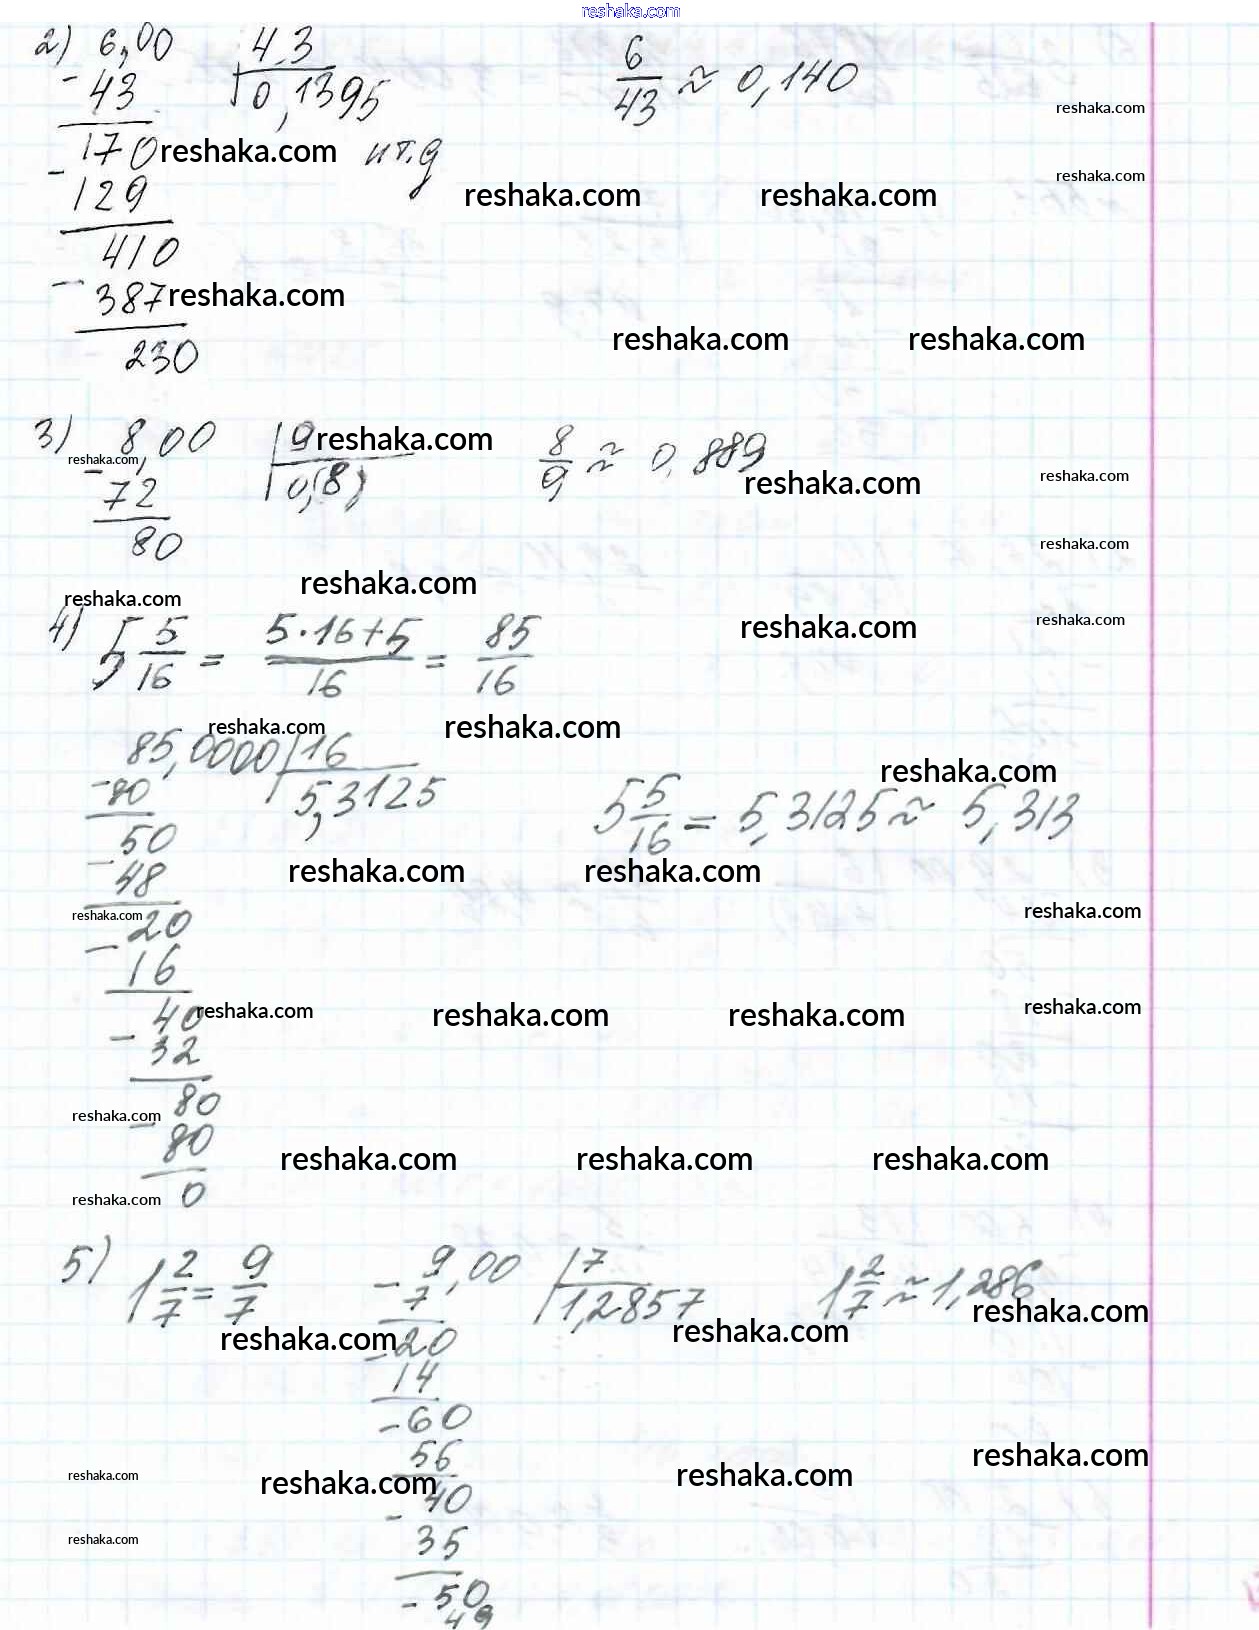 reshaka.com
2) 6,00 | 43
- 43 0,1395 6/43 ≈ 0,140
reshaka.com
170 reshaka.com и т.д
reshaka.com
- 129 reshaka.com reshaka.com
410
- 387 reshaka.com
reshaka.com reshaka.com
230
3) 8,00 | 9 reshaka.com 8/9 ≈ 0,889
reshaka.com
- 72 0,(8) reshaka.com reshaka.com
80 reshaka.com
reshaka.com reshaka.com
4) 5 5/16 = (5·16+5)/16 = 85/16 reshaka.com reshaka.com
reshaka.com reshaka.com
85,0000 | 16 reshaka.com
- 80 5,3125 5 5/16 = 5,3125 ≈ 5,313
50
- 48 reshaka.com reshaka.com
reshaka.com 20 reshaka.com
- 16
40 reshaka.com reshaka.com reshaka.com reshaka.com
- 32
80
reshaka.com
- 80 reshaka.com reshaka.com reshaka.com
reshaka.com 0
5) 1 2/7 = 9/7 - 9,00 | 7 1 2/7 ≈ 1,286
7 1,2857 reshaka.com
reshaka.com - 20 reshaka.com
14
- 60
56 reshaka.com
reshaka.com reshaka.com reshaka.com
- 40
reshaka.com 35
- 50
49